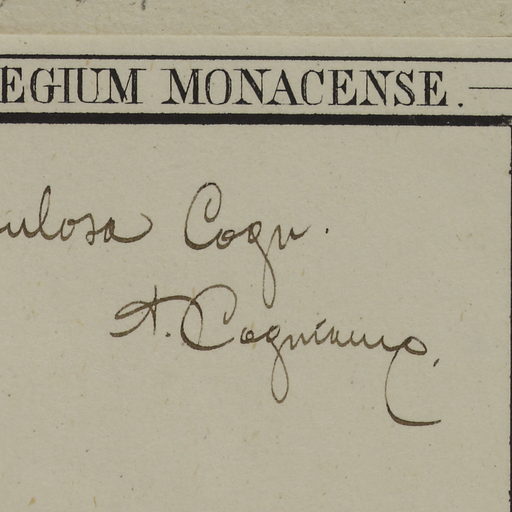 EGIUM MONACENSE.
ulosa Cogn.
A. Cogniaux,